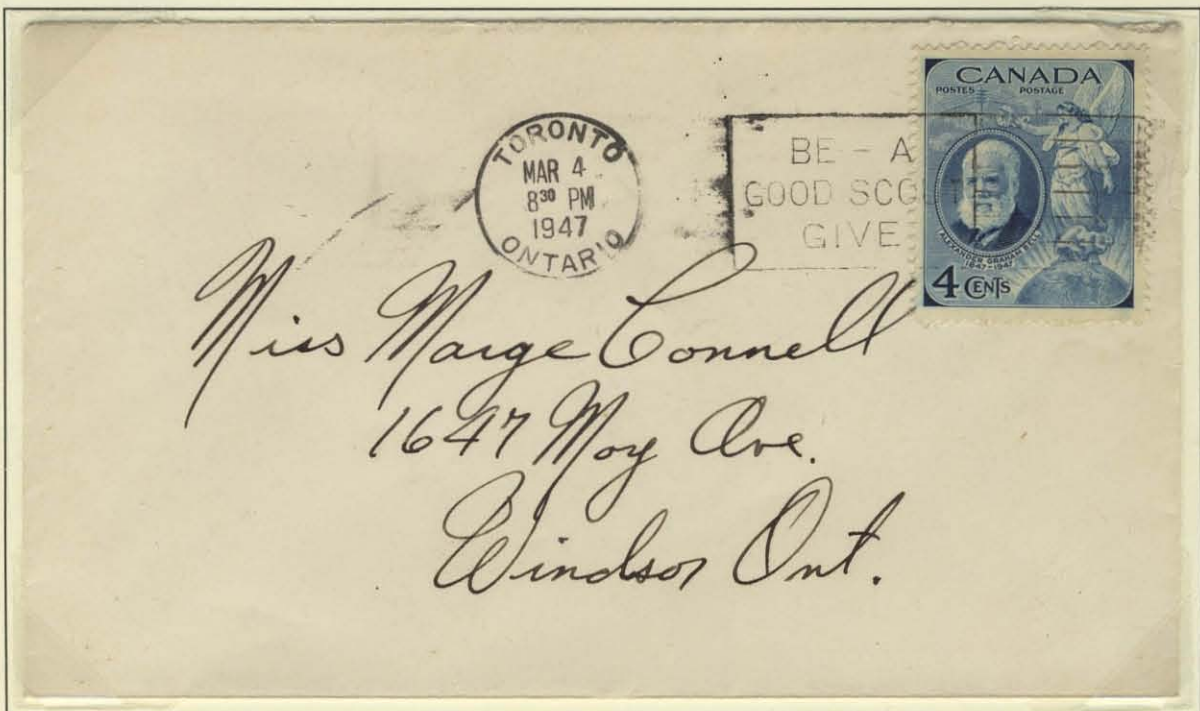 TORONTO
MAR 4
8³⁰ PM
1947
ONTARIO
BE - A
GOOD SCOUT
GIVE
CANADA
POSTES POSTAGE
ALEXANDER GRAHAM BELL
1847-1947
4 CENTS
Miss Marge Connell
1647 Moy Ave.
Windsor Ont.